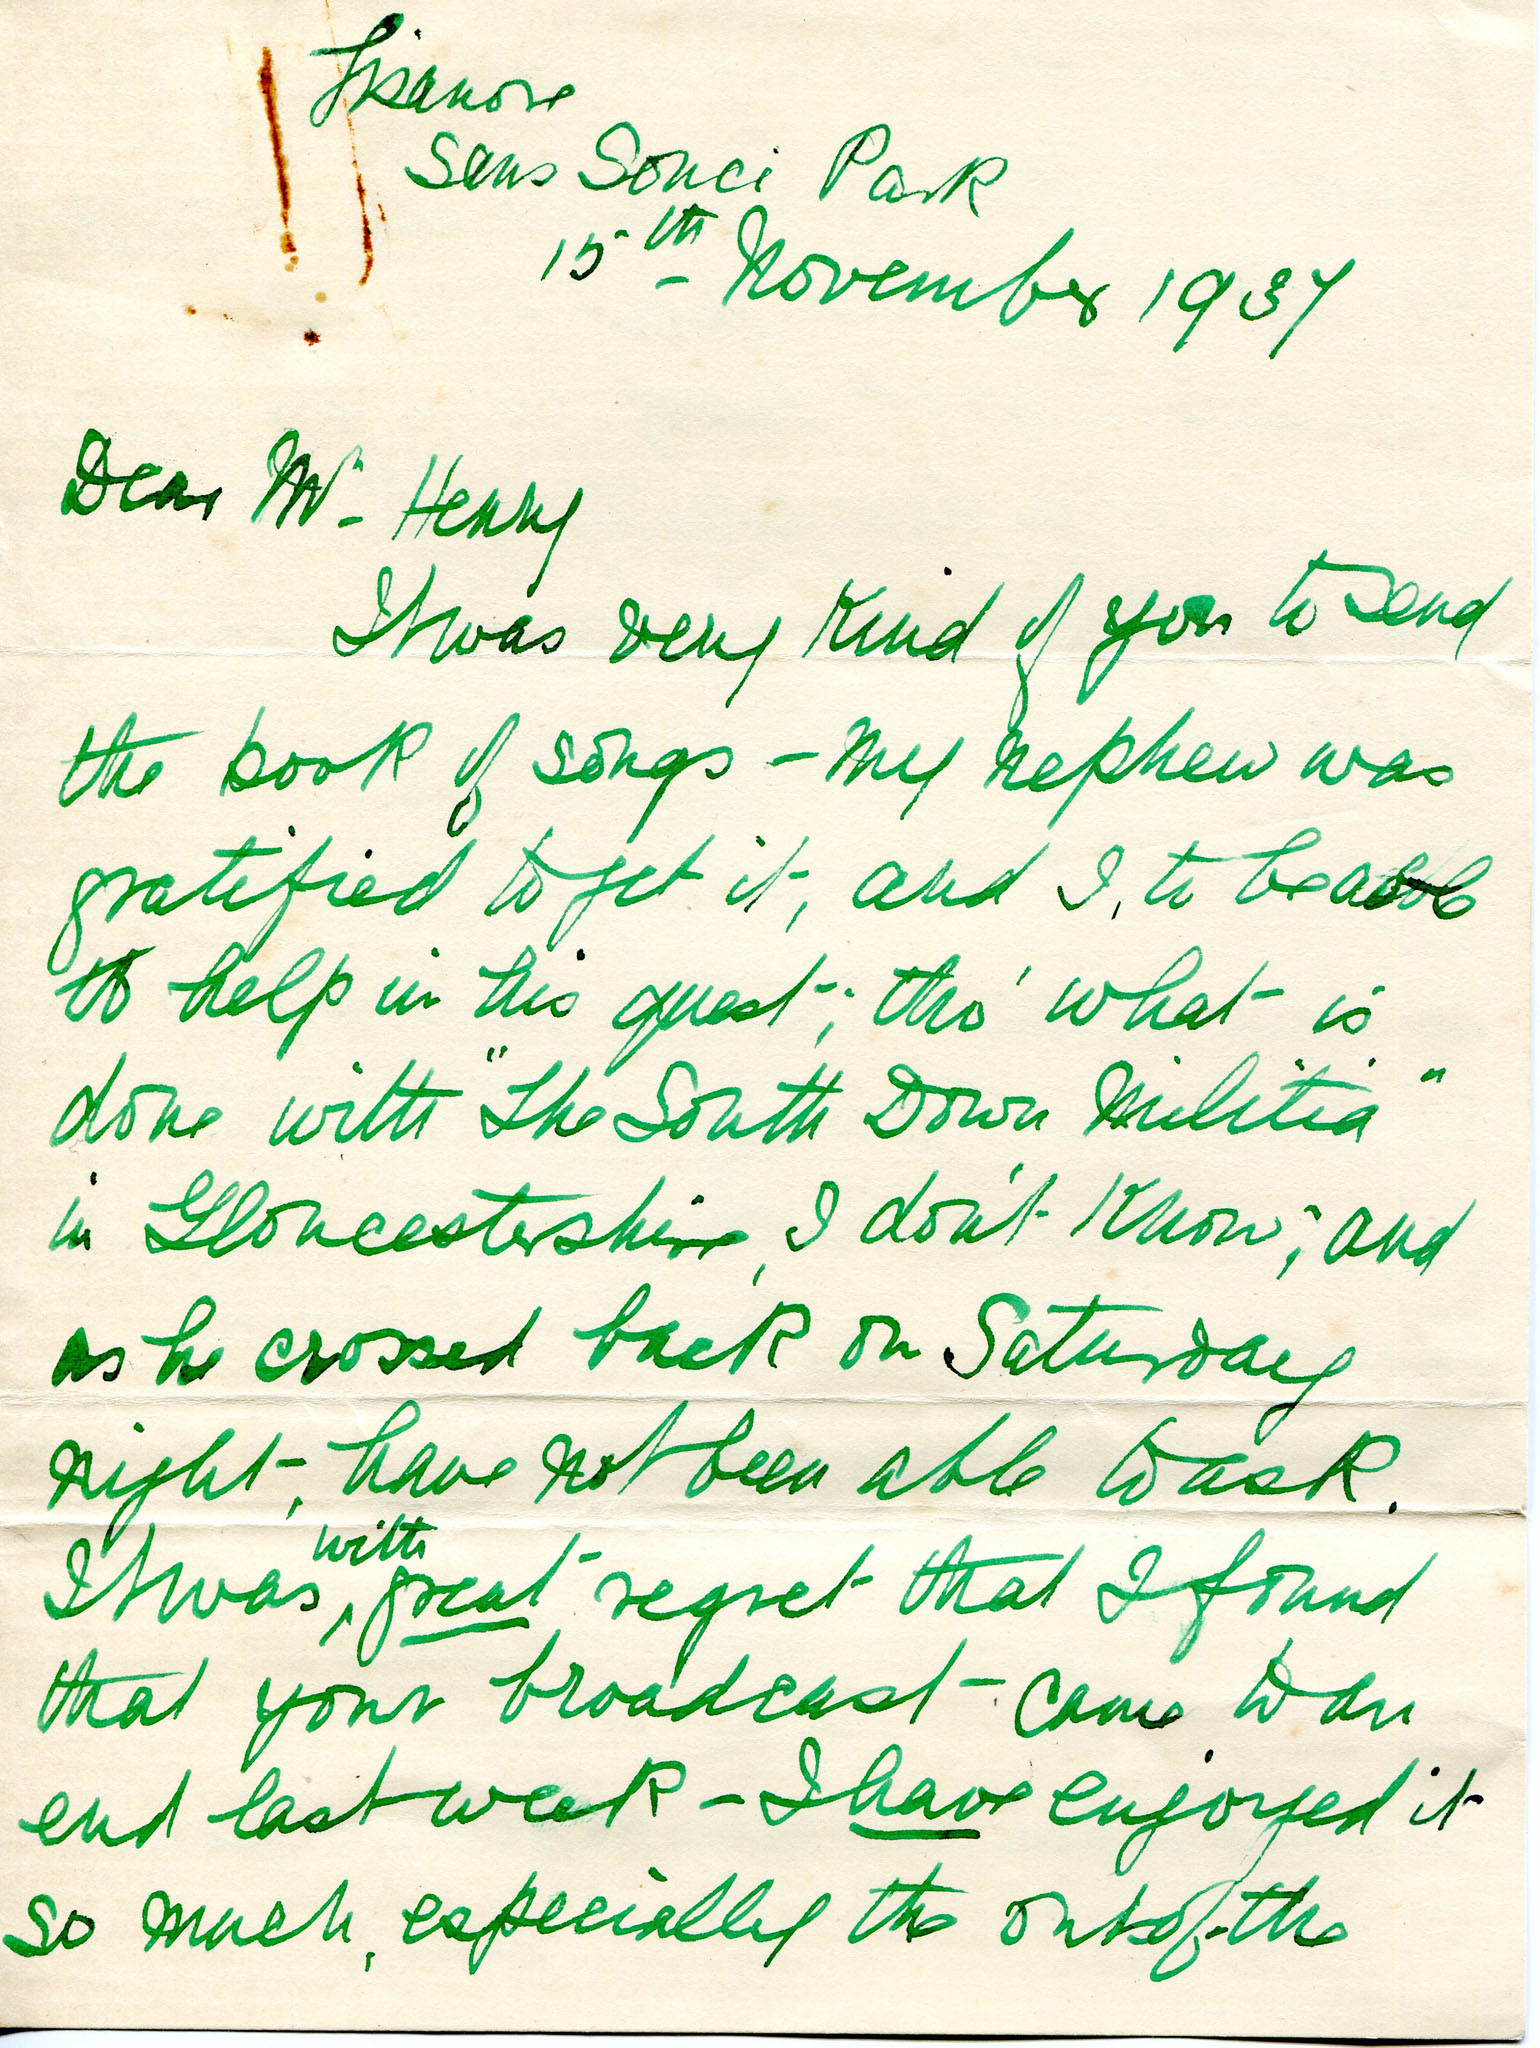 Lisanore
Sans Souci Park
15th November 1937
Dear Mr. Henry
It was very kind of you to send
the book of songs – my nephew was
gratified to get it, and I, to be able
to help in his quest; tho' what is
done with "The South Down Militia"
in Gloucestershire, I don't know; and
as he crossed back on Saturday
night, have not been able to ask.
It was with great regret that I found
that your broadcast came to an
end last week – I have enjoyed it
so much, especially the out-of-the